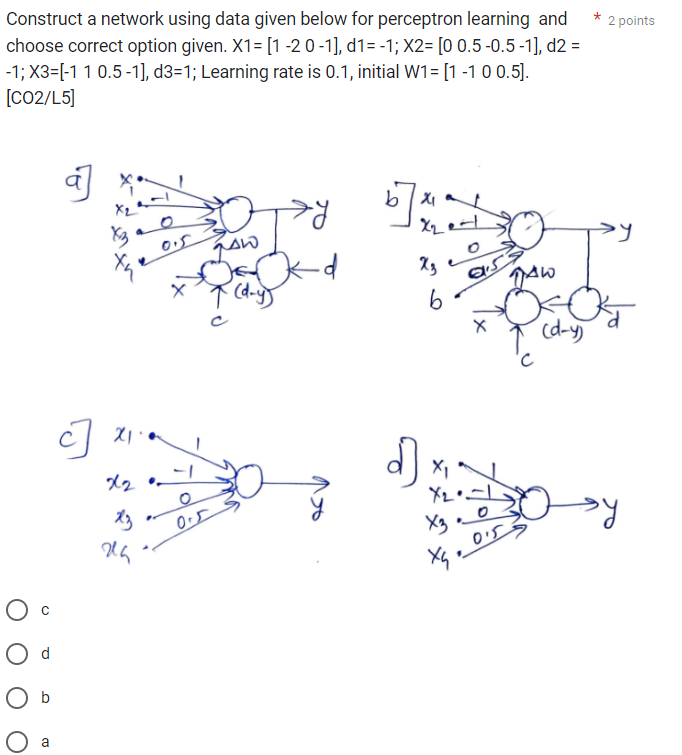 Construct a network using data given below for perceptron learning and * 2 points
choose correct option given. X1= [1 -2 0 -1], d1= -1; X2= [0 0.5 -0.5 -1], d2 =
-1; X3=[-1 1 0.5 -1], d3=1; Learning rate is 0.1, initial W1= [1 -1 0 0.5].
[CO2/L5]
a]
x1
1
x2
-1
x3
0
x4
0.5
y
ΔW
d
x
(d-y)
c
b]
x1
1
x2
-1
0
x3
0.5
b
y
ΔW
x
(d-y)
d
c
c]
x1
1
x2
-1
x3
0
x4
0.5
y
d]
x1
1
x2
-1
x3
0
x4
0.5
y
c
d
b
a